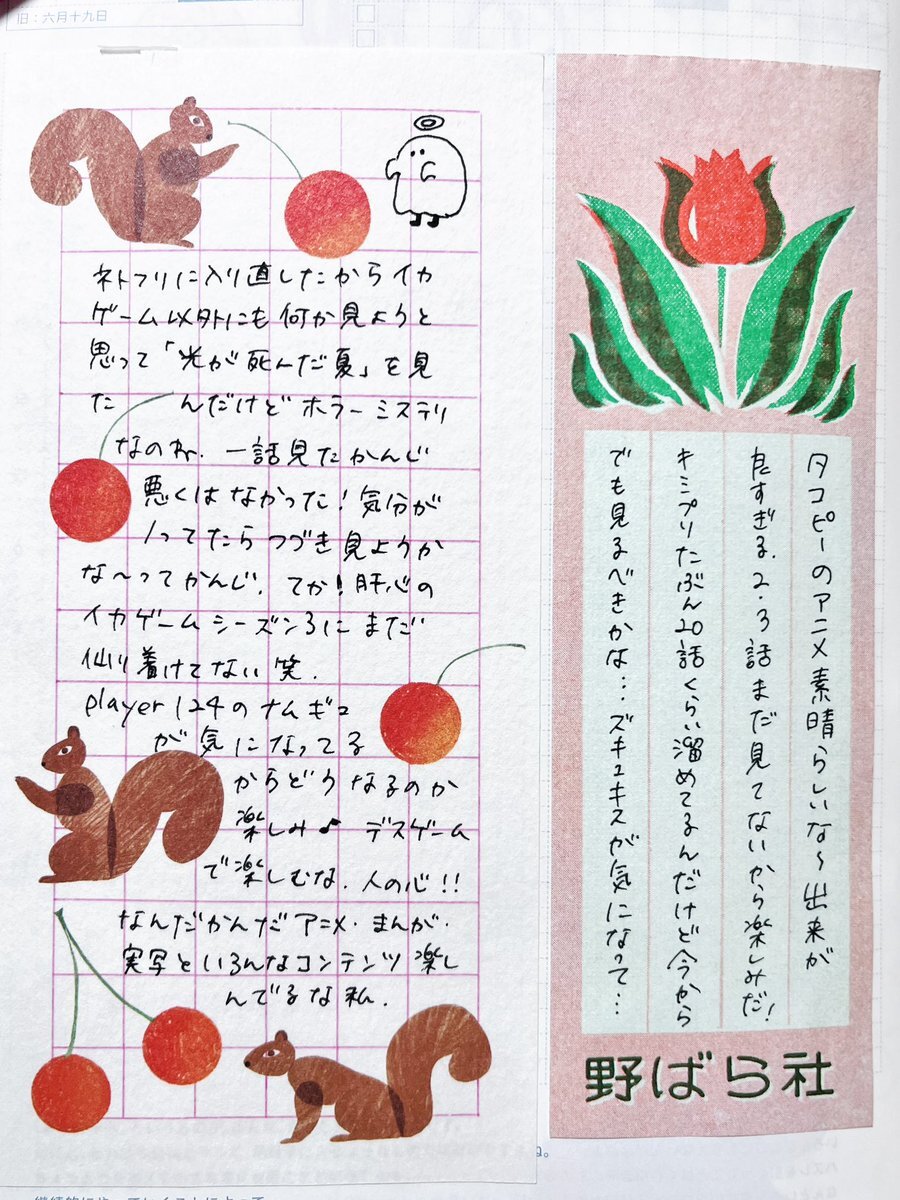 旧：六月十九日
ネトフリに入り直したからイカ
ゲーム以外にも何か見ようと
思って「光が死んだ夏」を見
た んだけどホラーミステリ
なのね．一話見たかんじ
悪くはなかった！気分が
ノってたらつづき見ようか
な〜ってかんじ．てか！肝心の
イカゲームシーズン3にまだ
仙り着けてない笑．
player 124のナムギュ
が気になってる
からどうなるのか
楽しみ♪ デスゲーム
で楽しむな．人の心!!
なんだかんだアニメ・まんが・
実写といろんなコンテンツ楽し
んでるな私．
タコピーのアニメ素晴らしいな〜出来が
良すぎる．2・3話まだ見てないから楽しみだ！
キミプリたぶん20話くらい溜めてるんだけど今から
でも見るべきかな…ズキュキスが気になって…
野ばら社